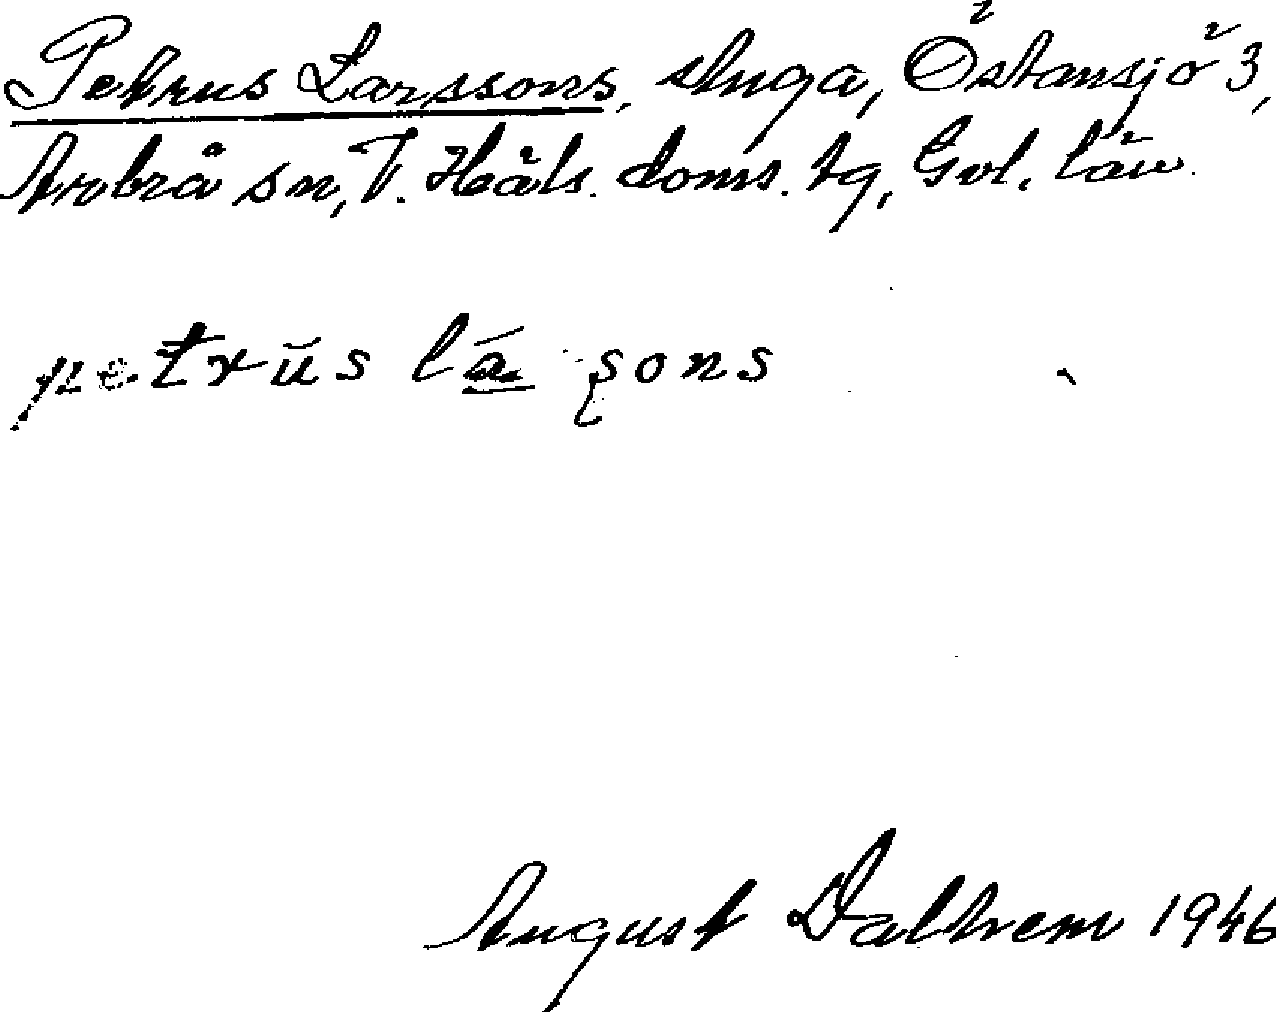 Petrus Larssons, stuga, Östansjö 3,
Arbrå sn, V. Häls. doms. tg, Gvl. län.
petrŭs lá sons
August Dalhem 1946